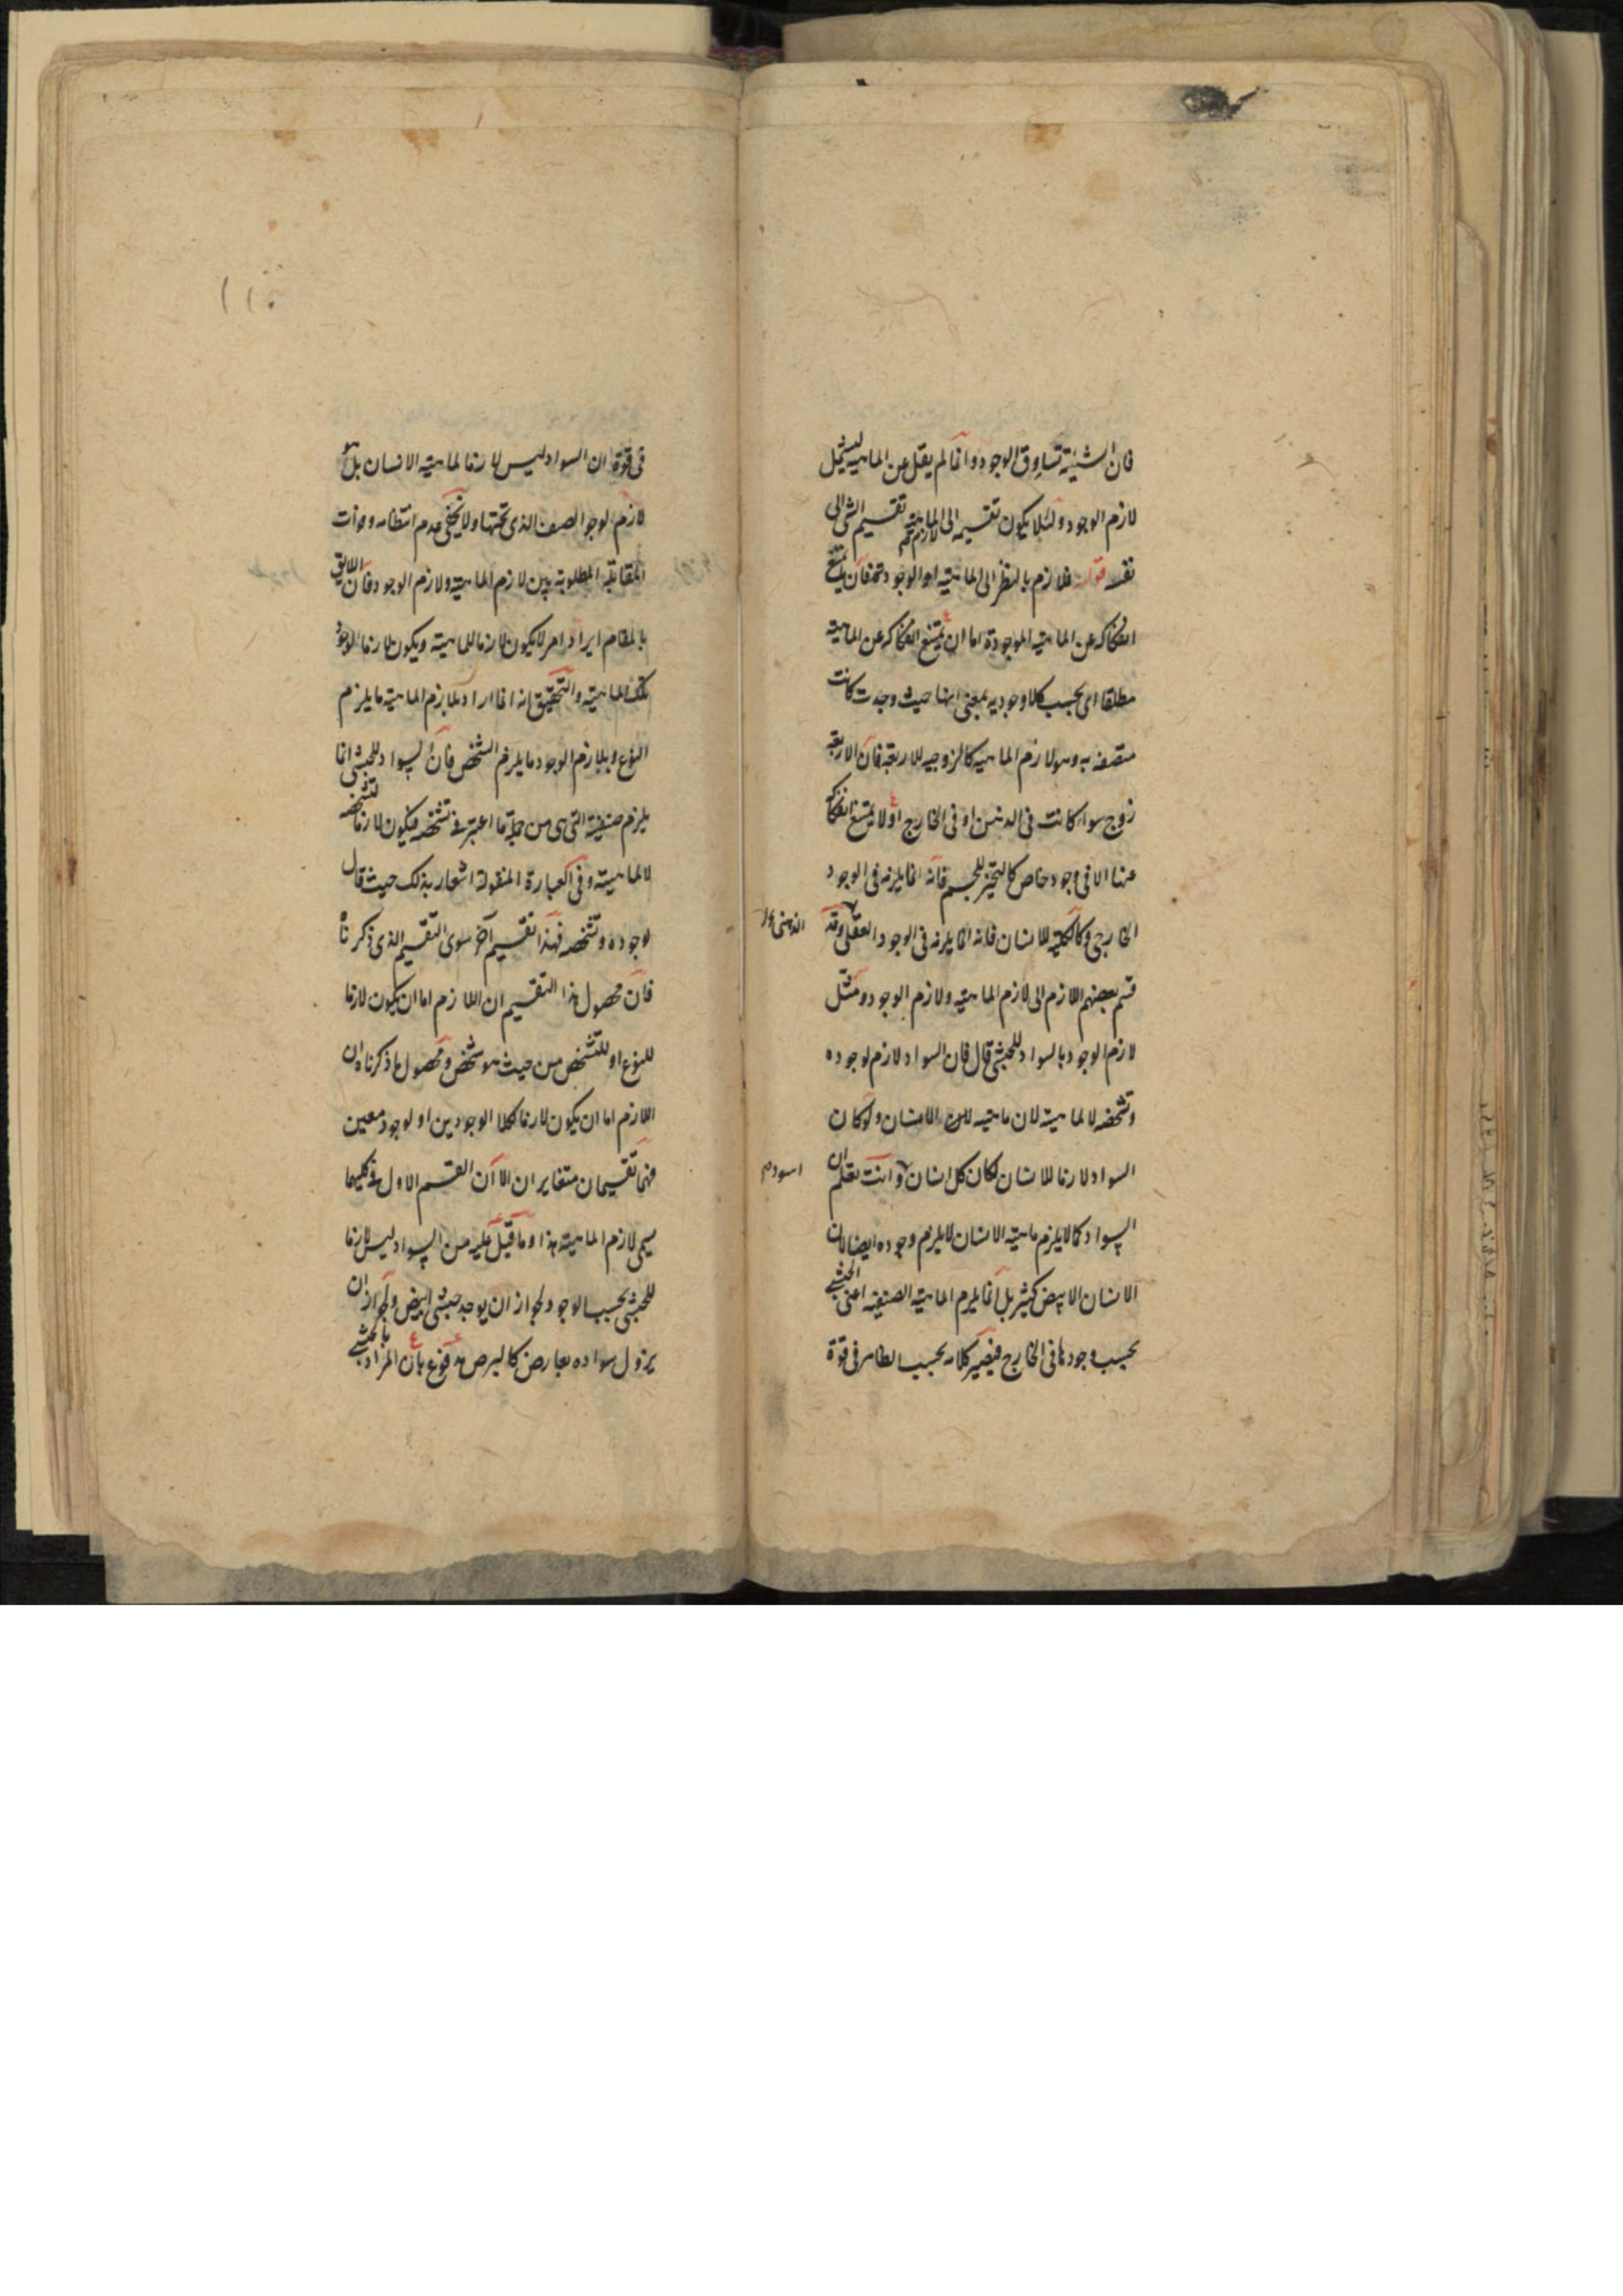 فان الشيئية تساوق الوجود وانما لم يقل عن الماهية ليشمل
لازم الوجود ولئلا يكون تقسيمه الى لازم الماهية تقسيم الشئ الى
نفسه قوله فلازم بالنظر الى الماهية او الوجود فان يمتنع
انفكاكه عن الماهية الموجودة اما ان يمتنع انفكاكه عن الماهية
مطلقا اى بحسب كلا وجوديه بمعنى انها حيث وجدت كانت
متصفة به وهو لازم الماهية كالزوجية للاربعة فان الاربعة
زوج سواء كانت فى الذهن او فى الخارج او لا يمتنع انفكاكه
عنها الا فى وجود خاص كالتحيز للجسم فانه انما يلزمه فى الوجود
الخارجى وكالكلية للانسان فانه انما يلزمه فى الوجود العقلى وقد
الذهنى
قسم بعضهم اللازم الى لازم الماهية ولازم الوجود ومثل
لازم الوجود بالسواد للحبشى قال فان السواد لازم لوجوده
وتشخصه لا لماهيته لان ماهيته الانسان ولو كان
السواد لازما للانسان لكان كل انسان وانت تعلم ان
اسود
السواد كما لا يلزم ماهية الانسان لا يلزم وجوده ايضا لان
الانسان الابيض كثير بل انما يلزم الماهية الصنفية اعنى الحبشى
بحسب وجودها فى الخارج فيصير كلامه بحسب الظاهر فى قوة
١١٠
فى قوة ان السواد ليس لازما لماهية الانسان بل هو
لازم لوجود الصنف الذى تحتها ولا يخفى عدم انتظامه وفوات
المقابلة المطلوبة بين لازم الماهية ولازم الوجود فان اللائق
بالمقام ايراد امر لا يكون لازما للماهية ويكون لازما لوجود
تلك الماهية والتحقيق انه انما اراد بلازم الماهية ما يلزم
النوع وبلازم الوجود ما يلزم الشخص فان السواد للحبشى انما
يلزم صنفيته التى هى من جملة ما اعتبر فى تشخصه فيكون لازما لتشخصه
لا لماهيته وفى العبارة المنقولة اشعار بذلك حيث قال
لوجوده وتشخصه فهذا تقسيم آخر سوى التقسيم الذى ذكرناه
فان محصول هذا التقسيم ان اللازم اما ان يكون لازما
للنوع او للتشخص من حيث هو شخص ومحصول ما ذكرناه ان
اللازم اما ان يكون لازما لكلا الوجودين او لوجود معين
فهما تقسيمان متغايران الا ان القسم الاول فى كليهما
يسمى لازم الماهية هذا وما قيل عليه من ان السواد ليس لازما
للحبشى بحسب الوجود لجواز ان يوجد حبشى ابيض ولجواز ان
يزول سواده بعارض كالبرص مدفوع بان المراد بالحبشى